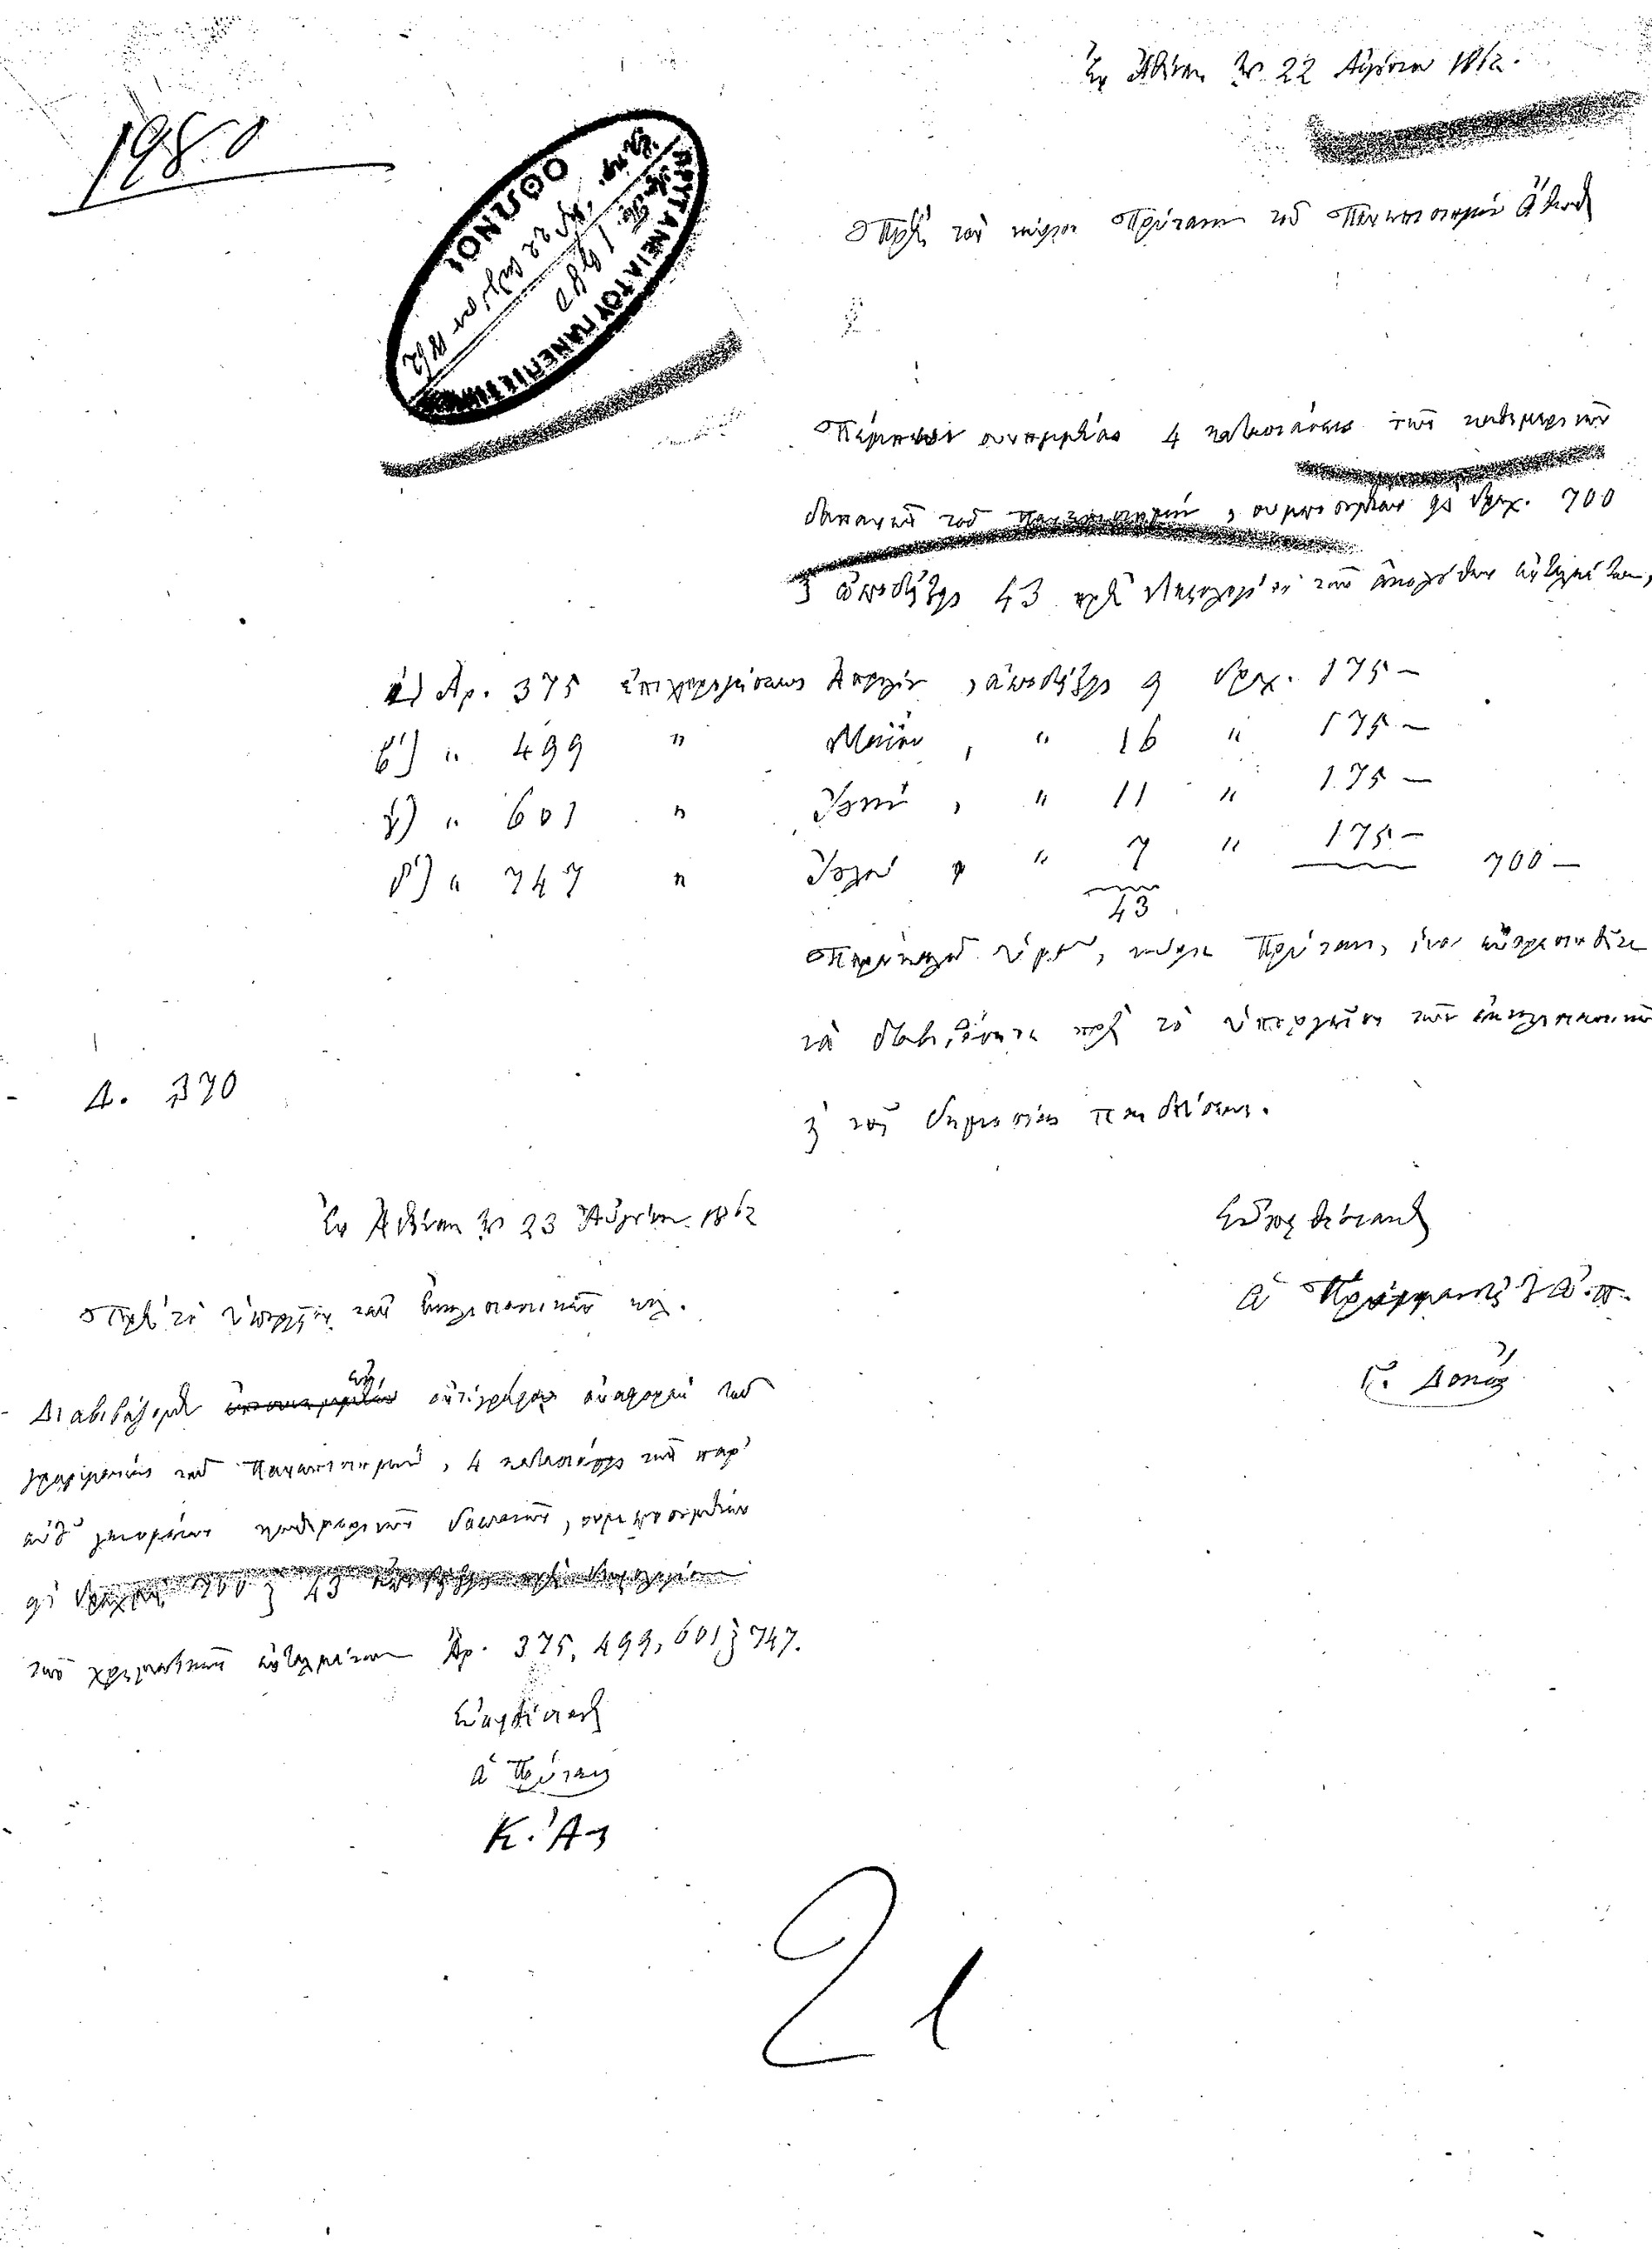 Ἐν Ἀθήναις τῇ 22 Αὐγούστου 1862.
1980
ΠΡΥΤΑΝΕΙΑ ΤΟΥ ΠΑΝΕΠΙΣΤΗΜΙΟΥ
ΟΘΩΝΟΣ
1980
22 Αὐγούστου 1862
Πρὸς τὸν κύριον Πρύτανιν τοῦ Πανεπιστημίου Ὄθωνος
Πέμπω συνημμένας 4 καταστάσεις τῶν καθημερινῶν
δαπανῶν τοῦ Πανεπιστημίου, συμποσουμένων εἰς δραχ. 700
καὶ ἀποδείξεις 43 πρὸς δικαιολόγησιν τῶν ἀκολούθων ἐνταλμάτων,
α) Ἀρ. 375 ἐπιχορηγήσεως Ἀπριλίου, ἀποδείξεις 9 δραχ. 175 —
β') " 499 " Μαΐου, " 16 " 175 —
γ) " 601 " Ἰουνίου, " 11 " 175 —
δ') " 747 " Ἰουλίου, " 7 " 175 — 700 —
43
Παρακαλῶ ὑμᾶς, κύριε Πρύτανι, ἵνα εὐαρεστηθῆτε
νὰ διαβιβάσητε πρὸς τὸ ὑπουργεῖον τῶν ἐκκλησιαστικῶν
καὶ τῆς δημοσίας ἐκπαιδεύσεως.
Δ. 370
Εὐπειθέστατος
ὁ Γραμματεὺς τ. Ὀ. Π.
Ἐν Ἀθήναις τῇ 23 Αὐγούστου 1862
Πρὸς τὸ ὑπουργεῖον τῶν Ἐκκλησιαστικῶν κλ.
Διαβιβάζομεν ἐν ἀντιγράφῳ ἀναφορὰν τοῦ
γραμματέως τοῦ Πανεπιστημίου, 4 καταστάσεις τῶν παρ'
αὐτοῦ γενομένων καθημερινῶν δαπανῶν, συμποσουμένων
εἰς δραχμὰς 700 καὶ 43 ἀποδείξεις πρὸς δικαιολόγησιν
τῶν χρηματικῶν ἐνταλμάτων Ἀρ. 375, 499, 601 καὶ 747.
Εὐπειθέστατος
ὁ Πρύτανις
Κ. Ἀ
21